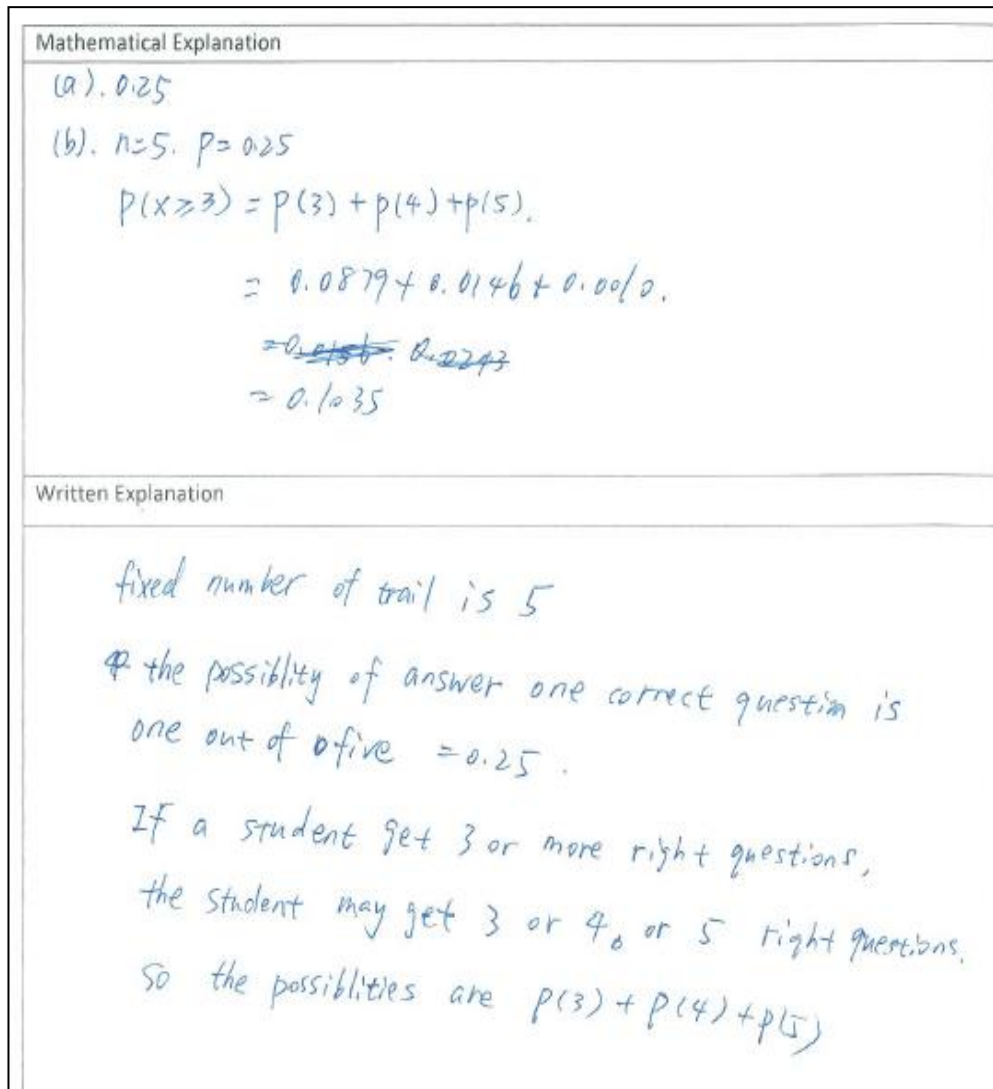 Mathematical Explanation
(a). 0.25
(b). n=5. P=0.25
P(x⩾3) = P(3) + p(4) + p(5).
= 0.0879 + 0.0146 + 0.0010.
= 0.1035
Written Explanation
fixed number of trail is 5
the possiblity of answer one correct question is
one out of five = 0.25.
If a student get 3 or more right questions,
the student may get 3 or 4, or 5 right questions.
So the possiblities are P(3) + P(4) + p(5)